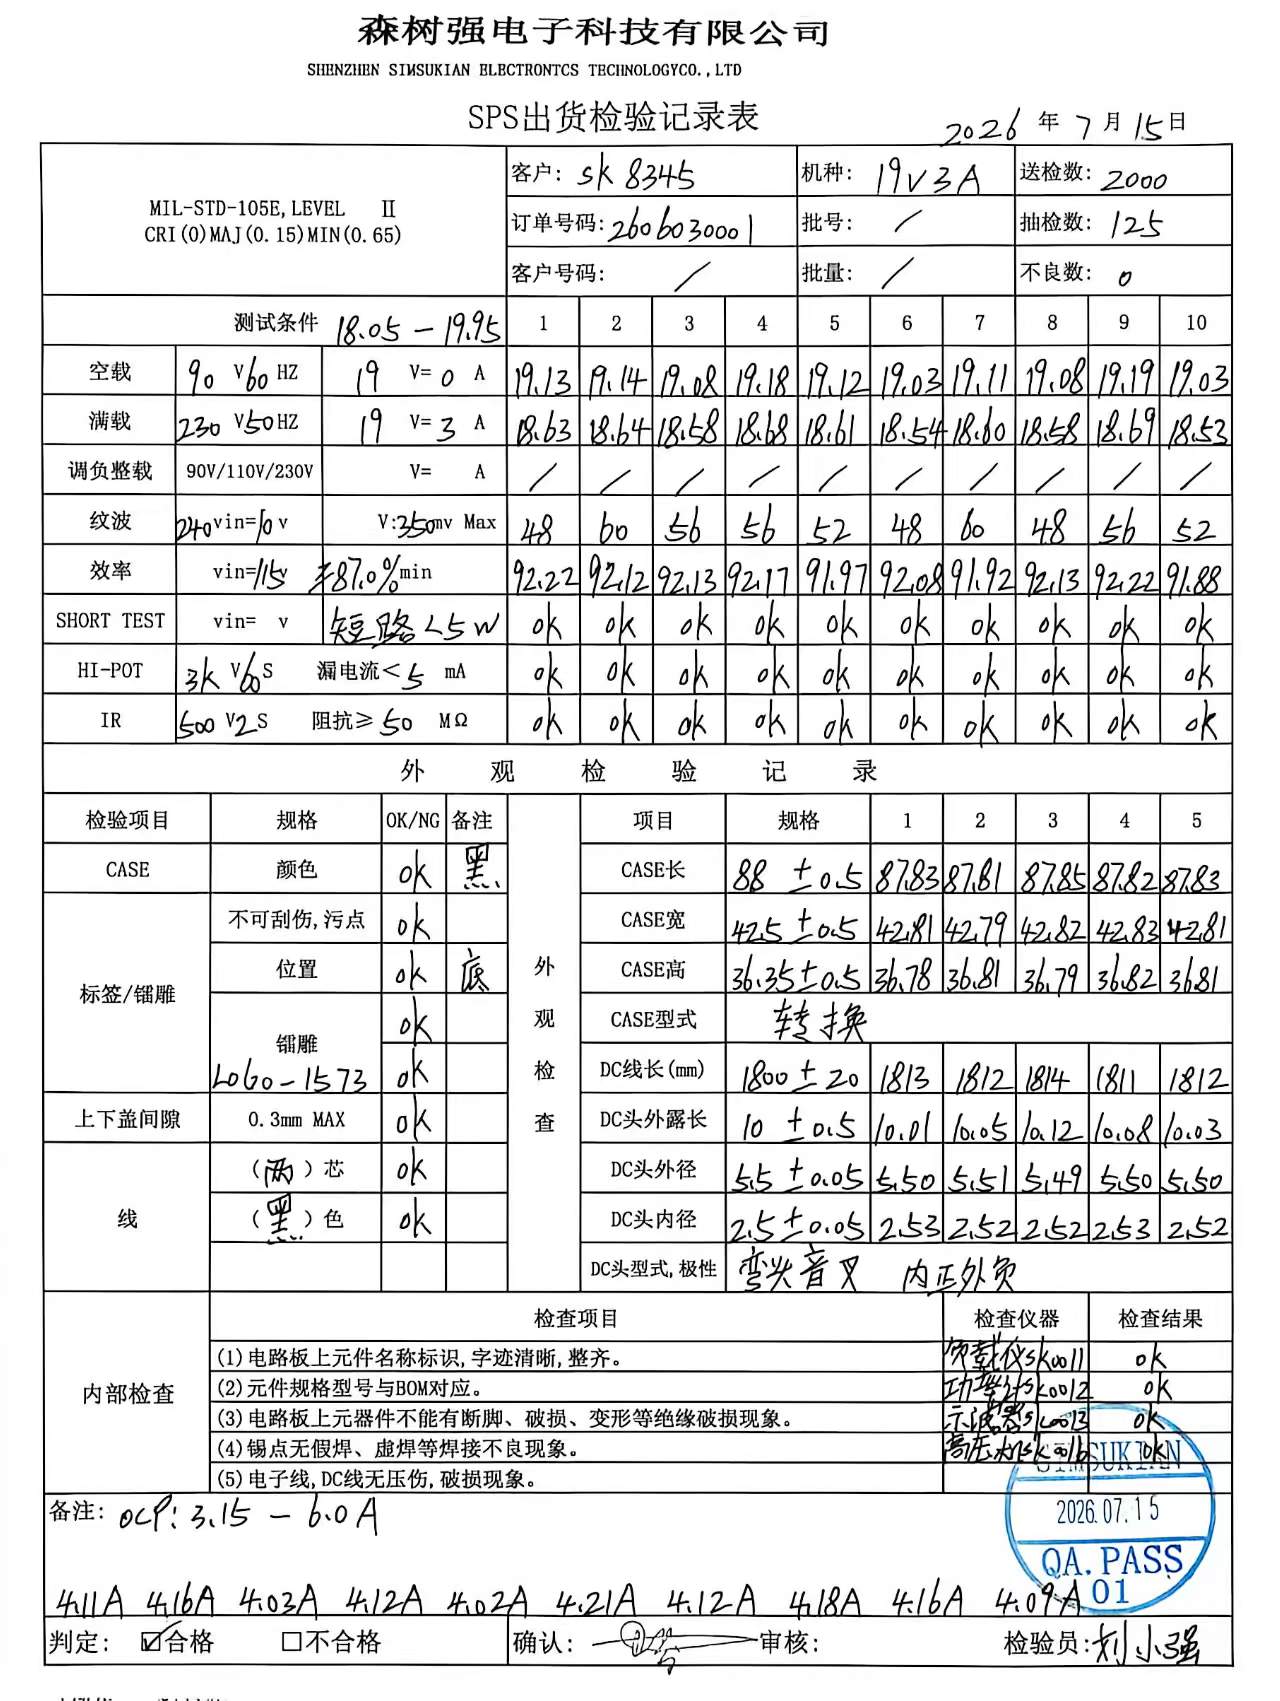 森树强电子科技有限公司
SHENZHEN SIMSUKIAN ELECTRONTCS TECHNOLOGYCO.,LTD
SPS出货检验记录表
2026 年 7 月 15 日
MIL-STD-105E, LEVEL Ⅱ
CRI(0)MAJ(0.15)MIN(0.65)
客户: sk 8345 机种: 19V3A 送检数: 2000
订单号码: 2606030001 批号: / 抽检数: 125
客户号码: / 批量: / 不良数: 0
测试条件 18.05 - 19.95 1 2 3 4 5 6 7 8 9 10
空载 90 V 60 HZ 19 V= 0 A 19.13 19.14 19.08 19.18 19.12 19.03 19.11 19.08 19.19 19.03
满载 230 V 50 HZ 19 V= 3 A 18.63 18.64 18.58 18.68 18.61 18.54 18.60 18.58 18.69 18.53
调负整载 90V/110V/230V V= A / / / / / / / / / /
纹波 240 vin= 10 v V: 350 mv Max 48 60 56 56 52 48 60 48 56 52
效率 vin= 115 v ≥87.0% min 92.22 92.12 92.13 92.17 91.97 92.08 91.92 92.13 92.22 91.88
SHORT TEST vin= v 短路<5W ok ok ok ok ok ok ok ok ok ok
HI-POT 3K V 60 S 漏电流< 5 mA ok ok ok ok ok ok ok ok ok ok
IR 500 V 2 S 阻抗≥ 50 MΩ ok ok ok ok ok ok ok ok ok ok
外观检验记录
检验项目 规格 OK/NG 备注 项目 规格 1 2 3 4 5
CASE 颜色 ok 黑 CASE长 88 ±0.5 87.83 87.81 87.85 87.82 87.83
不可刮伤,污点 ok CASE宽 42.5 ±0.5 42.81 42.79 42.82 42.83 42.81
标签/镭雕 位置 ok 底 外观检查 CASE高 36.35±0.5 36.78 36.81 36.79 36.82 36.81
ok CASE型式 转换
镭雕 LOGO-1573 ok DC线长(mm) 1800 ± 20 1813 1812 1814 1811 1812
上下盖间隙 0.3mm MAX ok DC头外露长 10 ±0.5 10.01 10.05 10.12 10.08 10.03
(两)芯 ok DC头外径 5.5 ±0.05 5.50 5.51 5.49 5.50 5.50
线 (黑)色 ok DC头内径 2.5±0.05 2.53 2.52 2.52 2.53 2.52
DC头型式,极性 弯头音叉 内正外负
检查项目 检查仪器 检查结果
内部检查
(1)电路板上元件名称标识,字迹清晰,整齐。 负载仪sk0011 ok
(2)元件规格型号与BOM对应。 功率计sk0012 ok
(3)电路板上元器件不能有断脚、破损、变形等绝缘破损现象。 示波器sk0013 ok
(4)锡点无假焊、虚焊等焊接不良现象。 高压机sk0016 ok
(5)电子线,DC线无压伤,破损现象。
SIMSUKIAN
2026.07.15
QA.PASS
01
备注: OCP: 3.15 - 6.0A
4.11A 4.16A 4.03A 4.12A 4.02A 4.21A 4.12A 4.18A 4.16A 4.09A
判定: ☑合格 □不合格 确认: 审核: 检验员: 刘小强